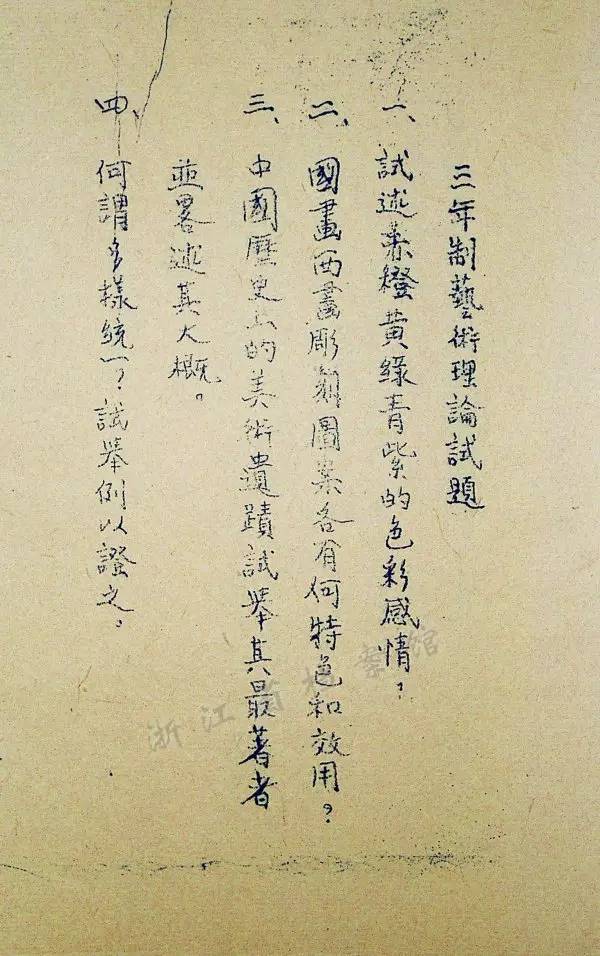 三年制藝術理論試題
一、試述赤橙黄綠青紫的色彩感情？
二、國畫西畫彫刻圖案各有何特色和效用？
三、中國歷史上的美術遺蹟試舉其最著者
並畧述其大概。
四、何謂多樣統一？試舉例以證之。
浙江省档案馆